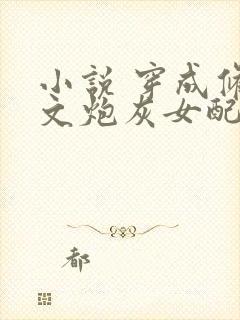 小说 穿成修
文炮灰女配
都